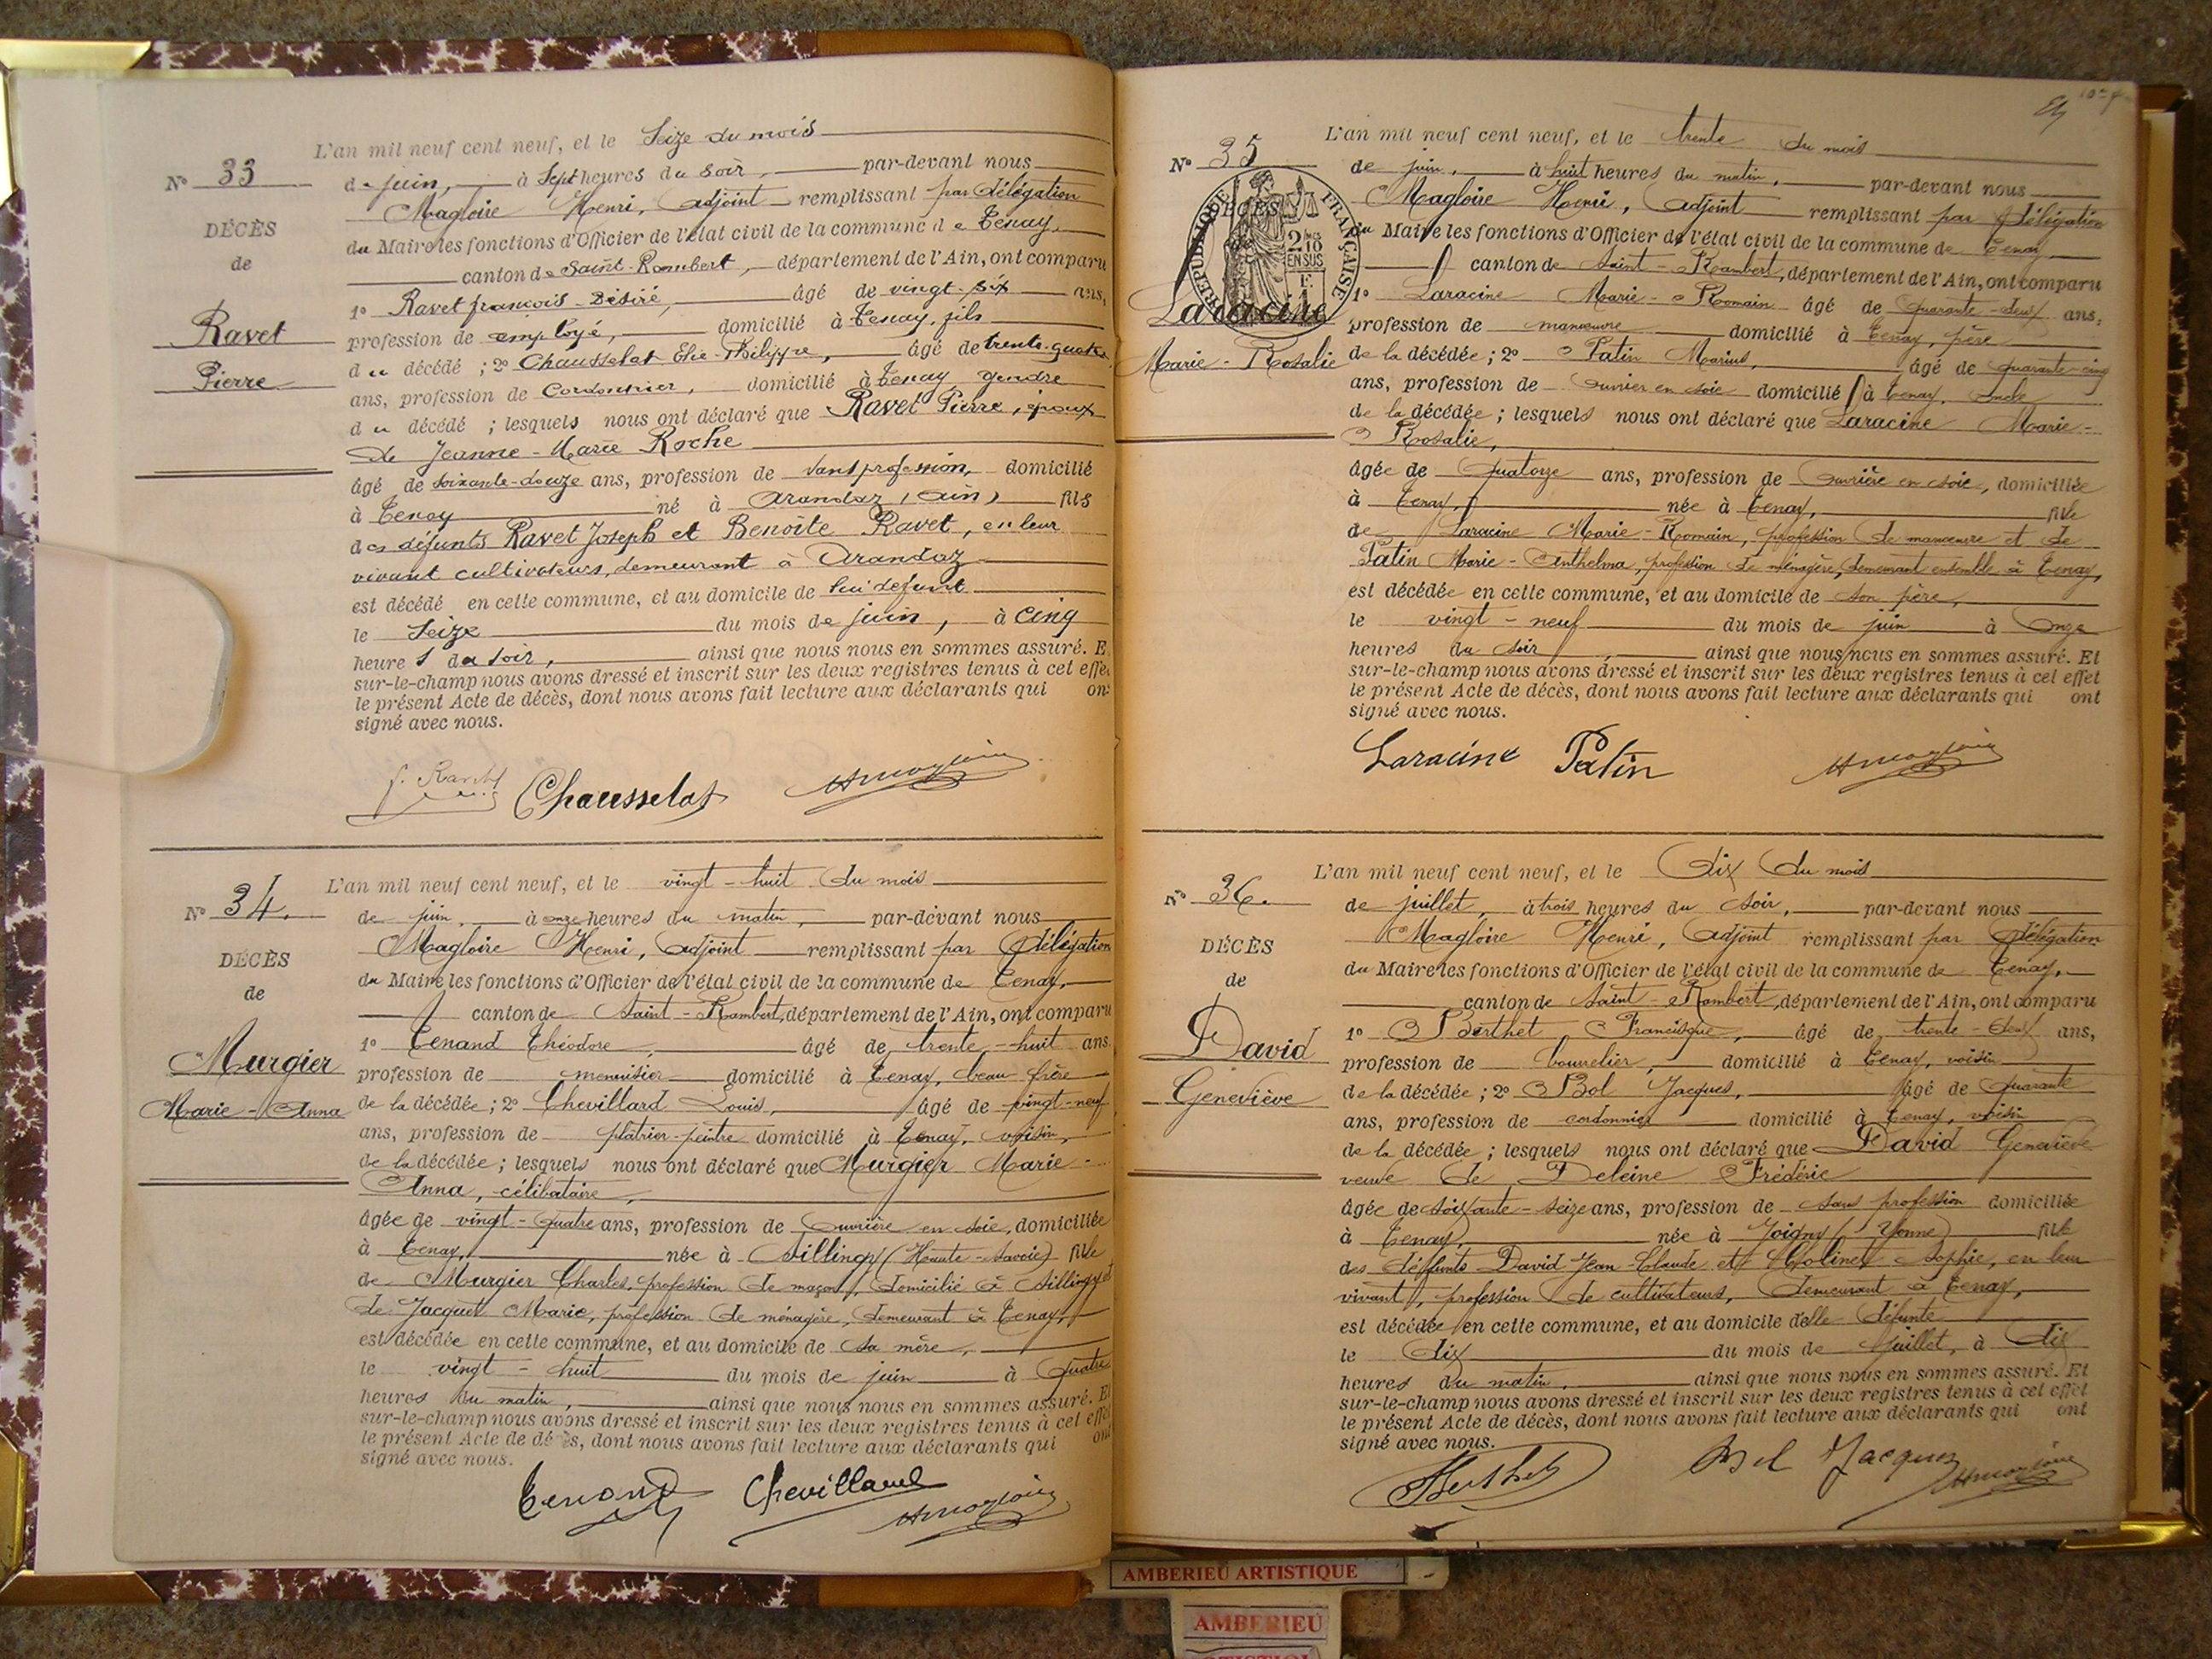 L'an mil neuf cent neuf, et le Seize du mois
N° 33
de juin, à Sept heures du soir, par-devant nous
Magloire Henri, adjoint remplissant par délégation
DÉCÈS
du Maire les fonctions d'Officier de l'état civil de la commune de Tenay,
de
canton de Saint-Rambert, département de l'Ain, ont comparu
1° Ravet françois-Désiré, âgé de vingt-six ans,
Ravet
profession de employé, domicilié à Tenay, fils
Pierre
du décédé ; 2° Chausselat Elie-Philippe, âgé de trente-quatre
ans, profession de Cordonnier, domicilié à Tenay gendre
du décédé ; lesquels nous ont déclaré que Ravet Pierre, époux
de Jeanne-Marie Roche
âgé de soixante-douze ans, profession de sans profession, domicilié
à Tenay né à Arandaz (Ain) fils
des défunts Ravet Joseph et Benoîte Ravet, en leur
vivant cultivateurs, demeurant à Arandaz
est décédé en cette commune, et au domicile de lui défunt
le Seize du mois de juin, à cinq
heures du soir, ainsi que nous nous en sommes assuré. E
sur-le-champ nous avons dressé et inscrit sur les deux registres tenus à cet effet
le présent Acte de décès, dont nous avons fait lecture aux déclarants qui ont
signé avec nous.
f. Ravet Chausselat HMagloire
L'an mil neuf cent neuf, et le vingt-huit du mois
N° 34.
de juin, à onze heures du matin, par-devant nous
Magloire Henri, adjoint remplissant par délégation
DÉCÈS
du Maire les fonctions d'Officier de l'état civil de la commune de Tenay,
de
canton de Saint-Rambert, département de l'Ain, ont comparu
1° Tenand Théodore, âgé de trente-huit ans
Murgier
profession de menuisier domicilié à Tenay, beau frère
Marie-Anna
de la décédée ; 2° Chevillard Louis, âgé de vingt-neuf
ans, profession de plâtrier-peintre domicilié à Tenay, voisin,
de la décédée ; lesquels nous ont déclaré que Murgier Marie-
Anna, célibataire,
âgée de vingt-quatre ans, profession de ouvrière en soie, domiciliée
à Tenay, née à Sillingy (Haute-Savoie) fille
de Murgier Charles, profession de maçon, domicilié à Sillingy et
de Jacquet Marie, profession de ménagère, demeurant à Tenay,
est décédée en cette commune, et au domicile de sa mère,
le vingt-huit du mois de juin à quatre
heures du matin, ainsi que nous nous en sommes assuré. Et
sur-le-champ nous avons dressé et inscrit sur les deux registres tenus à cet effet
le présent Acte de décès, dont nous avons fait lecture aux déclarants qui ont
signé avec nous.
Tenand Chevillard HMagloire
L'an mil neuf cent neuf, et le trente du mois
N° 35
de juin, à huit heures du matin, par-devant nous
Magloire Henri, adjoint remplissant par délégation
DÉCÈS
RÉPUBLIQUE FRANÇAISE
2/10 EN SUS
du Maire les fonctions d'Officier de l'état civil de la commune de Tenay
canton de Saint-Rambert, département de l'Ain, ont comparu
1° Laracine Marie-Romain âgé de quarante-deux ans,
Laracine
profession de manœuvre domicilié à Tenay, père
Marie-Rosalie
de la décédée ; 2° Patin Marius, âgé de quarante-cinq
ans, profession de ouvrier en soie domicilié à Tenay, oncle
de la décédée ; lesquels nous ont déclaré que Laracine Marie-
Rosalie,
âgée de quatorze ans, profession de ouvrière en soie, domiciliée
à Tenay, née à Tenay, fille
de Laracine Marie-Romain, profession de manœuvre et de
Patin Marie-Anthelma, profession de ménagère, demeurant ensemble à Tenay,
est décédée en cette commune, et au domicile de son père,
le vingt-neuf du mois de juin à onze
heures du soir, ainsi que nous nous en sommes assuré. Et
sur-le-champ nous avons dressé et inscrit sur les deux registres tenus à cet effet
le présent Acte de décès, dont nous avons fait lecture aux déclarants qui ont
signé avec nous.
Laracine Patin HMagloire
L'an mil neuf cent neuf, et le dix du mois
N° 36.
de juillet, à trois heures du soir, par-devant nous
Magloire Henri, adjoint remplissant par délégation
DÉCÈS
du Maire les fonctions d'Officier de l'état civil de la commune de Tenay,
de
canton de Saint-Rambert, département de l'Ain, ont comparu
1° Berthet Francisque, âgé de trente-deux ans,
David
profession de bourrelier, domicilié à Tenay, voisin
Geneviève
de la décédée ; 2° Bol Jacques, âgé de quarante
ans, profession de cordonnier domicilié à Tenay, voisin
de la décédée ; lesquels nous ont déclaré que David Geneviève
veuve de Deleine Frédéric
âgée de soixante-seize ans, profession de sans profession domiciliée
à Tenay, née à Joigny (Yonne) fille
des défunts David Jean-Claude et Moliney Sophie, en leur
vivant, profession de cultivateurs, demeurant à Tenay,
est décédée en cette commune, et au domicile d'elle-défunte
le dix du mois de juillet, à dix
heures du matin, ainsi que nous nous en sommes assuré. Et
sur-le-champ nous avons dressé et inscrit sur les deux registres tenus à cet effet
le présent Acte de décès, dont nous avons fait lecture aux déclarants qui ont
signé avec nous.
Berthet Bol Jacques HMagloire
AMBERIEU ARTISTIQUE
AMBERIEU